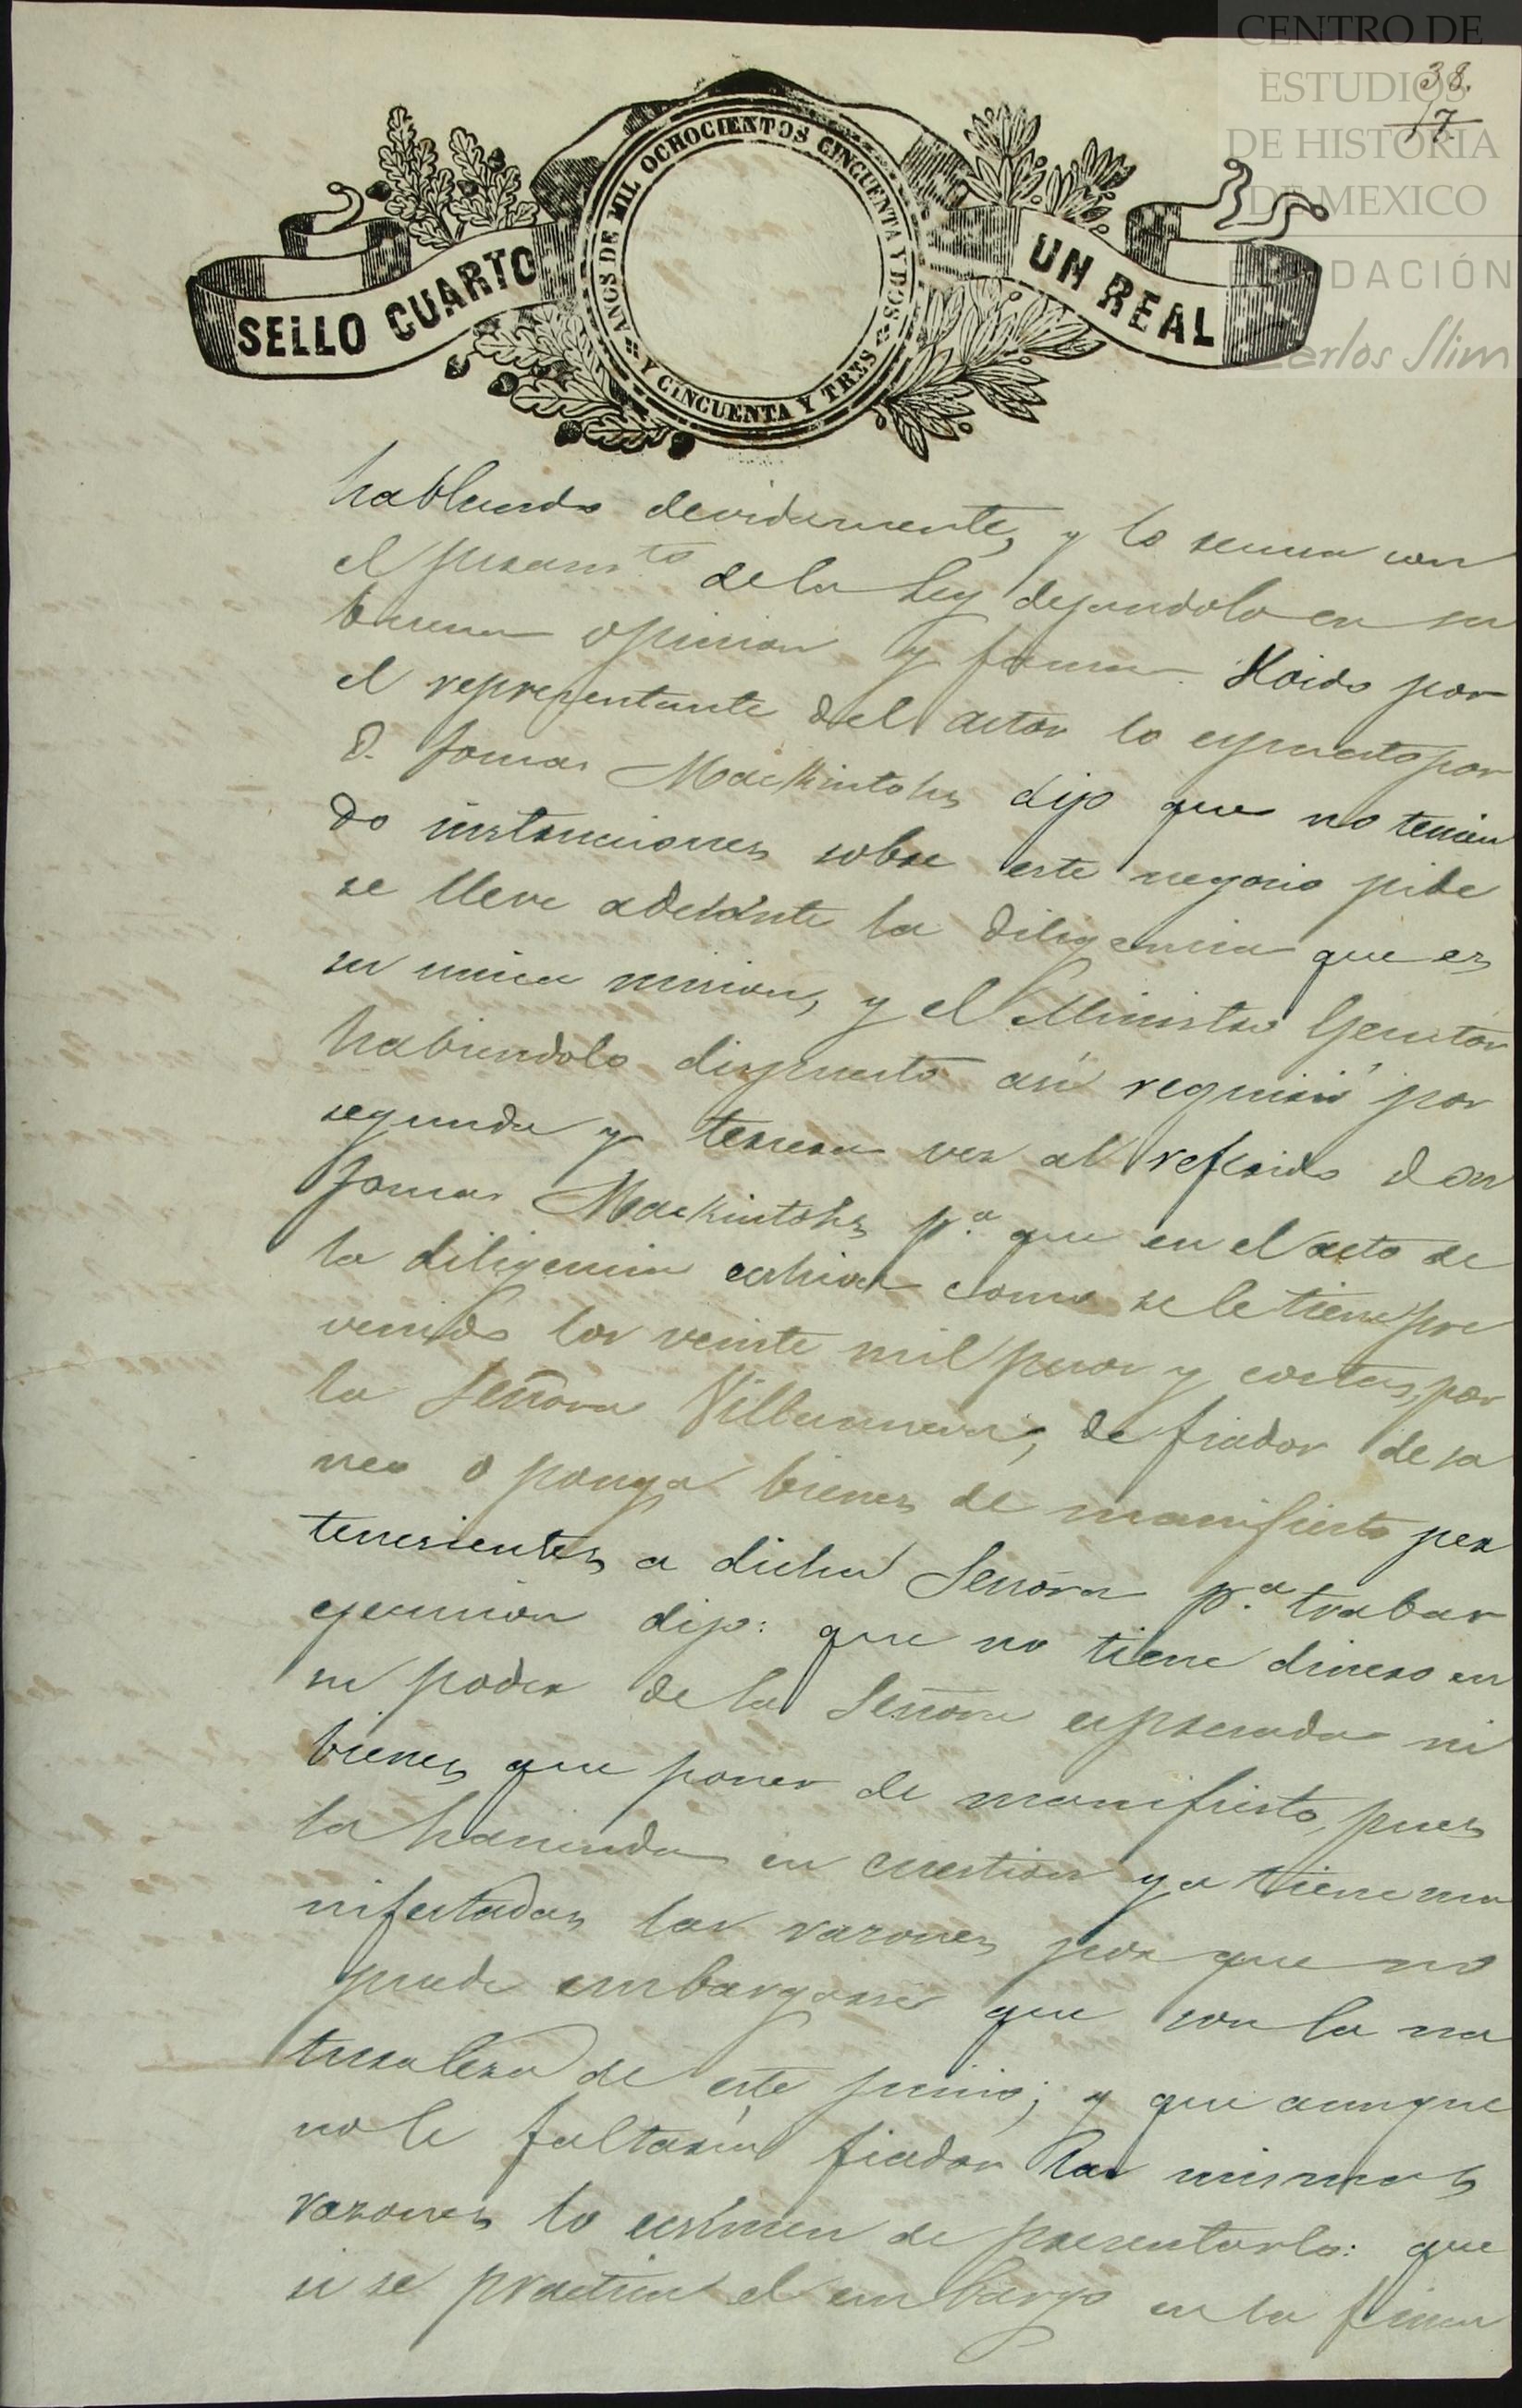 CENTRO DE
ESTUDIOS
DE HISTORIA
DE MEXICO
FUNDACIÓN
Carlos Slim
38.
17
SELLO CUARTO
UN REAL
AÑOS DE MIL OCHOCIENTOS CINCUENTA Y DOS
Y CINCUENTA Y TRES
hablando devidamente, y lo con
el de la Ley dejandolo en su
buena opinion y fama. Hoido por
el representante del actor lo espuesto por
D. Tomas Mackintohs dijo que no tenien
do instrucciones sobre este negocio pide
se lleve adelante la diligencia que es
su unica mision, y el Ministro Ejecutor
habiendolo dispuesto asi requirió por
segunda y tercera vez al referido Don
Tomas Mackintohs p.ª que en el acto de
la diligencia exhiva como se le tiene pre
venido los veinte mil pesos y costas, por
la Señora Villanueva, de fiador de sa
neo o ponga bienes de manifiesto per
tenecientes a dicha Señora p.ª trabar
ejecucion dijo: que no tiene dinero en
su poder de la Señora espresada ni
bienes que poner de manifiesto, pues
la hacienda en cuestion ya tiene ma
nifestadas las razones por que no
puede embargarse que son la na
turaleza de este juicio; y que aunque
no le faltaria fiador las mismas
razones lo escimen de presentarlo: que
si se practica el embargo en la finca